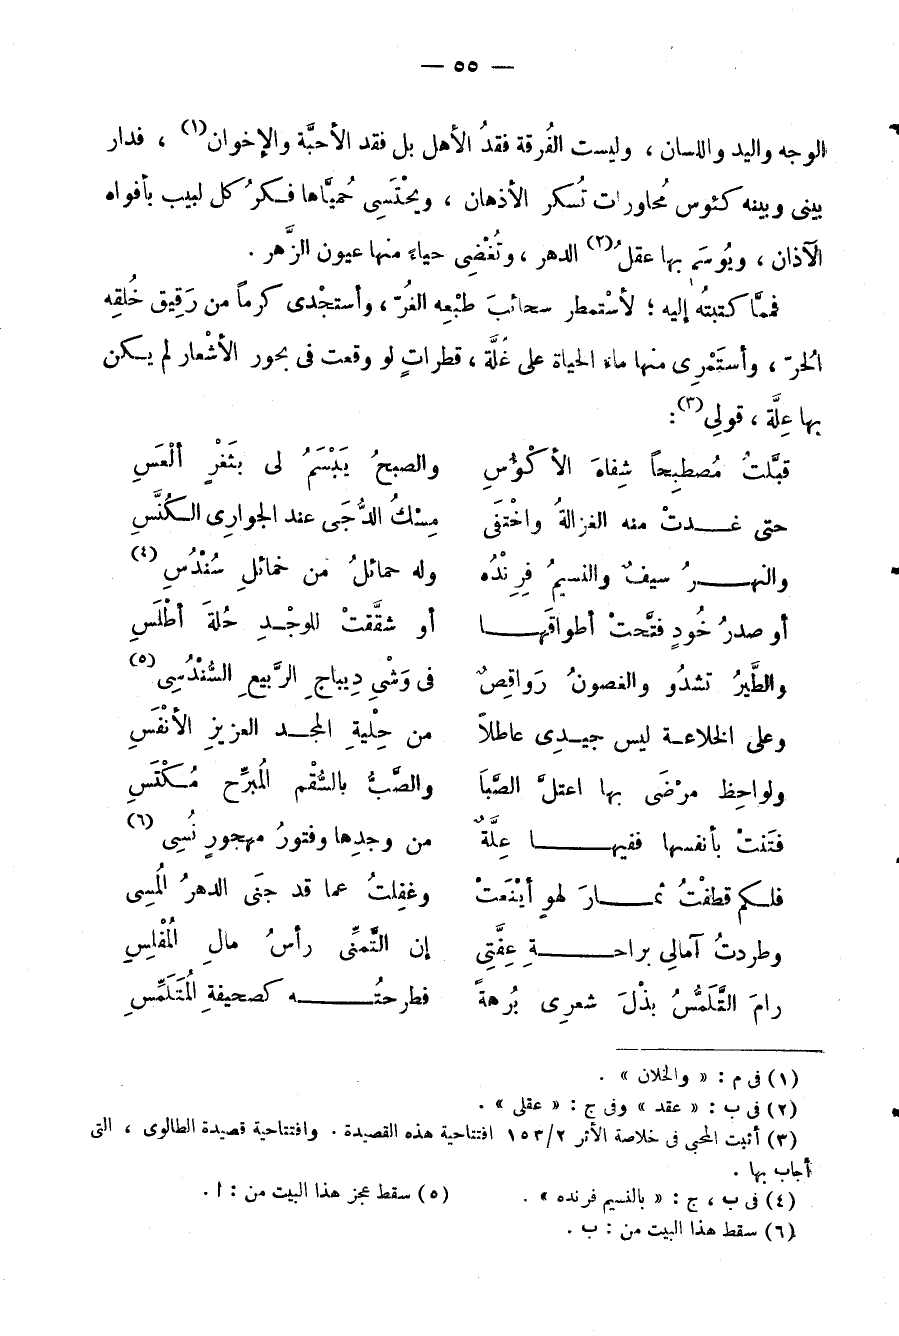 — ٥٥ —
الوجه واليد واللسان ، وليست الفُرقة فقدُ الأهل بل فقد الأحبَّة والإخوان(١) ، فدار
بينى وبينه كئوس مُحاورات تُسكر الأذهان ، ويحْتَسِى حُميَّاها فكرُ كل لبيب بأفواه
الآذان ، ويُوسَم بها عقلُ(٢) الدهر ، وتُغْضِى حياءً منها عيون الزَّهر .
فممَّا كتبتُه إليه ؛ لأسْتمطر سحائبَ طبْعِه الغُرّ ، وأستجْدى كرماً من رَقِيق خُلقِه
الحُرّ ، وأستَمْرِى منها ماءَ الحياة على غُلَّة ، قطراتٍ لو وقعت فى بحور الأشْعار لم يكن
بها عِلَّة ، قولِى(٣) :
قبَّلتُ مُصطبِحاً شِفاهَ الأكْؤسِ والصبحُ يَبْسَمُ لى بثغرٍ ألْعَسِ
حتى غدتْ منه الغزالةُ واخْتفَى مِسْكُ الدُّجَى عند الجوارِى الكُنَّسِ
والنهرُ سيفٌ والنسيمُ فِرِنْدُه وله حمائلُ من خمائلِ سُنْدُسِ (٤)
أو صدرُ خُودٍ فتَّحتْ أطواقَها أو شقَّقتْ للوجْدِ حُلةَ أطْلَسِ
والطَّيرُ تشدُو والغصونُ رَواقِصٌ فى وَشْىِ دِيباجِ الرَّبيعِ السُّنْدُسِى(٥)
وعلى الخلاعة ليس جيدِى عاطلاً من حِلْيةِ المجد العزيزِ الأنْفَسِ
ولواحِظ مرْضَى بها اعتلَّ الصَّبَا والصَّبُّ بالسُّقْم المُبرِّح مُكْتَسِ
فتَنتْ بأنفسها ففيها عِلَّةٌ من وجدِها وفتورُ مهجورٍ نُسِى (٦)
فلكم قطفْتُ ثمارَ لهوٍ أيْنَعتْ وغفِلتُ عما قد جنَى الدهرُ المُسِى
وطردتُ آمالِى براحةِ عِفَّتِى إن التَّمنِّى رأسُ مالِ المُفْلسِ
رامَ القَلَمَّسُ بذْلَ شعرِى بُرهةً فطرحتُه كصحيفةِ المُتَلَمِّسِ
(١) فى م : « والخلان » .
(٢) فى ب : « عقد » وفى ج : « عقلى » .
(٣) أثبت المحبى فى خلاصة الأثر ١٥٣/٢ افتتاحية هذه القصيدة . وافتتاحية قصيدة الطالوى ، التى
أجاب بها .
(٤) فى ب ، ج : « بالنسيم فرنده » . (٥) سقط عجز هذا البيت من : ا .
(٦) سقط هذا البيت من : ب .